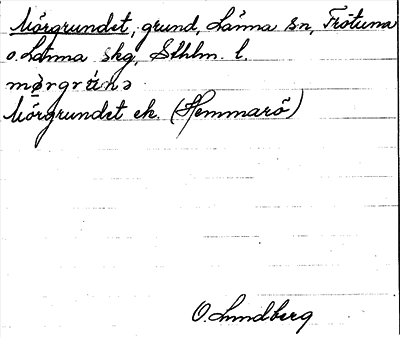 Mörgrundet, grund, Länna sn, Frötuna
o. Länna skg, Sthlm. l.
mø̀rgrúnə
Mörgrundet ek. (Hemmarö)
O. Lundberg